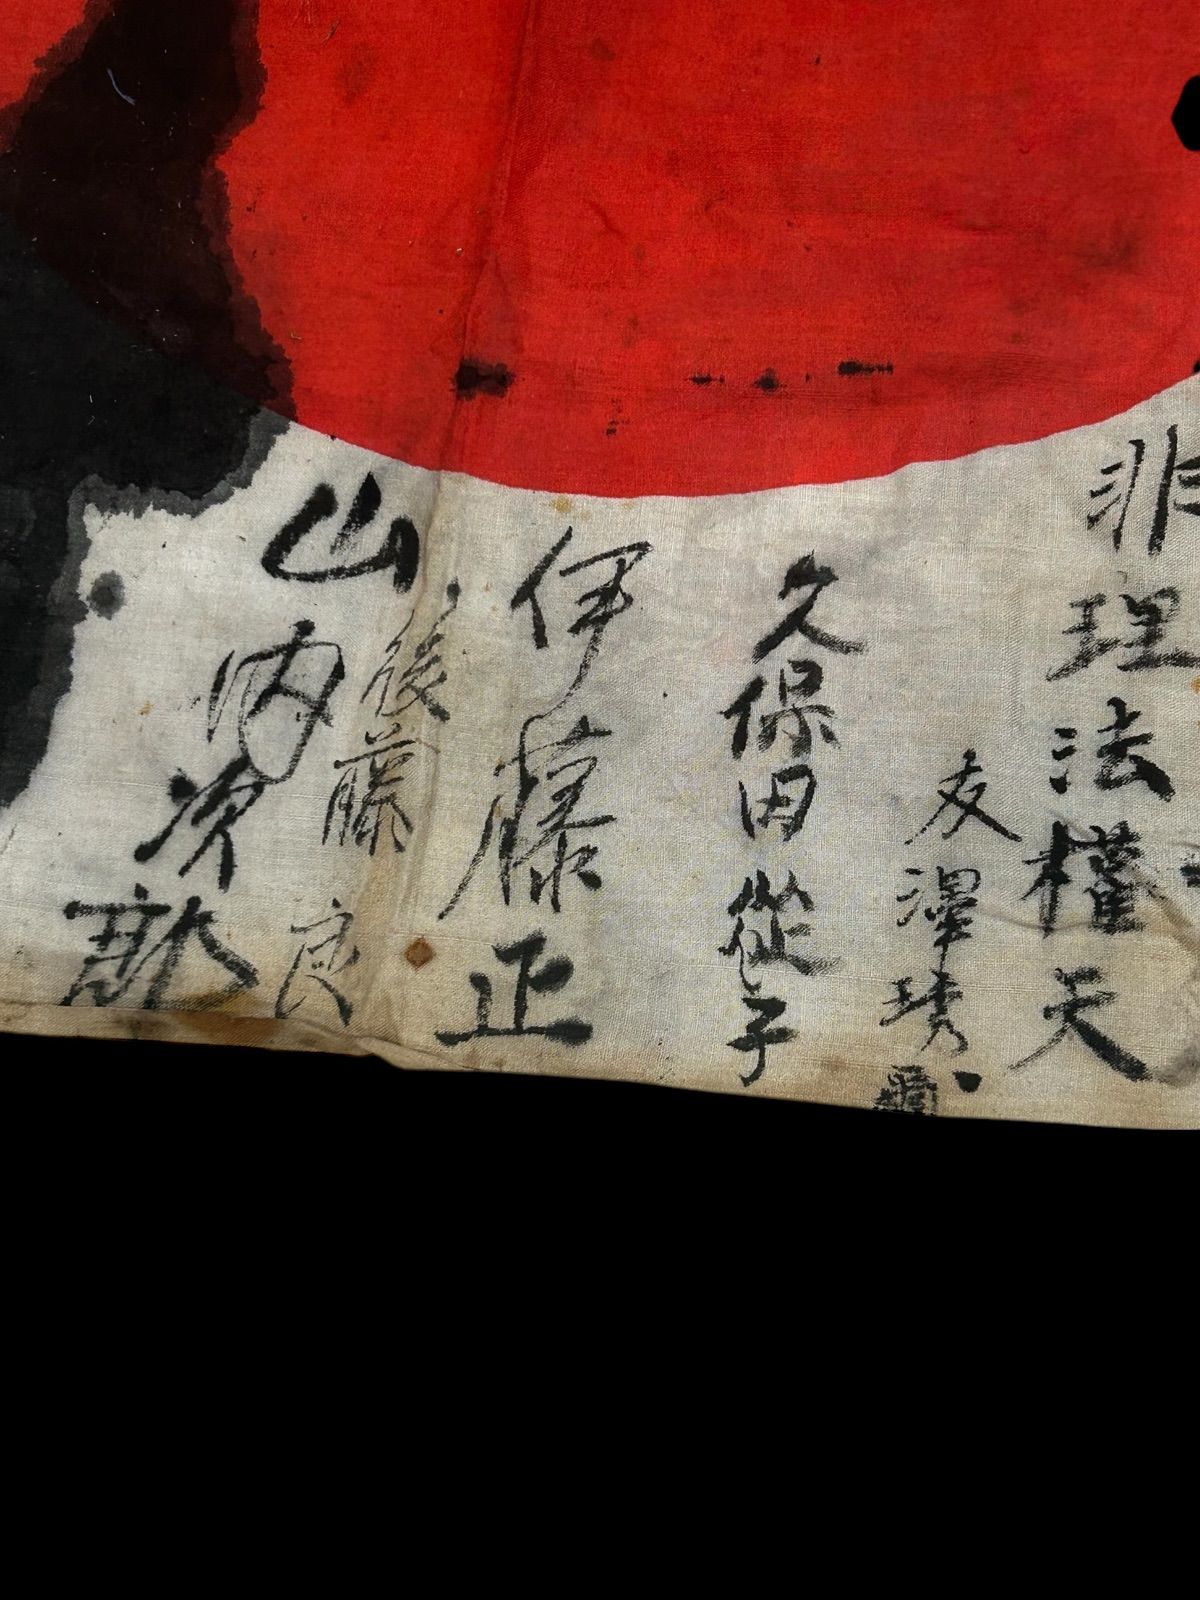 非理法權天
友澤
久保田從子
伊藤正
後藤良
山内次郎